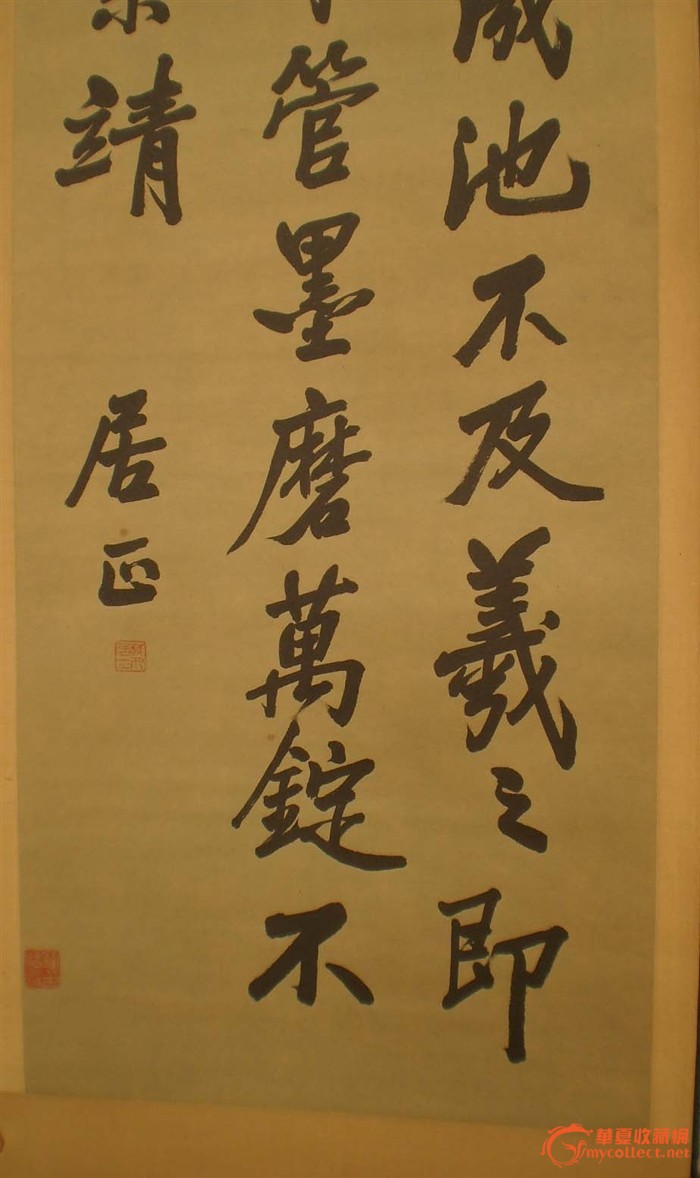 成池不及羲之即
管墨磨萬錠不
靖
居正
華夏收藏網
mycollect.net